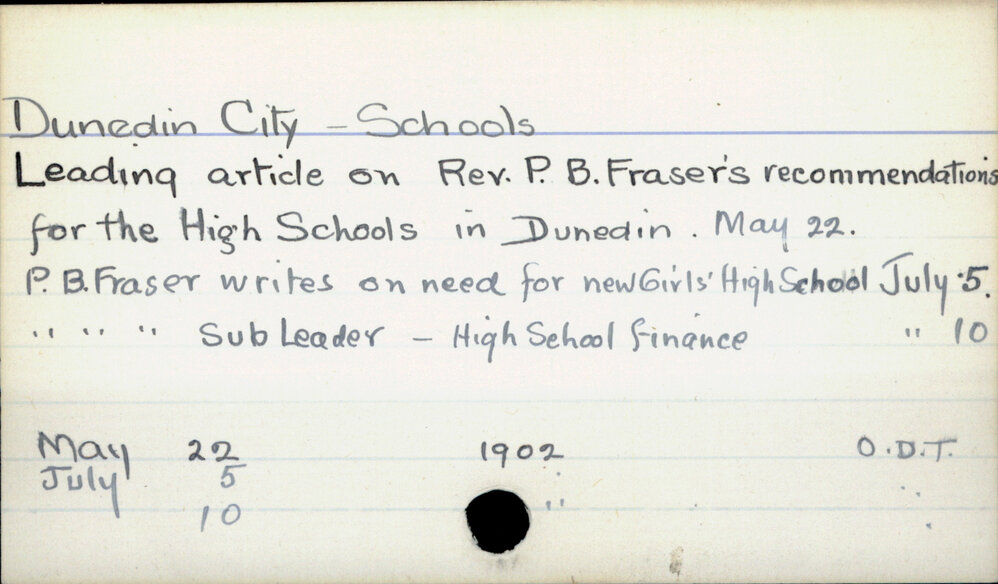 Dunedin City - Schools
Leading article on Rev. P. B. Fraser's recommendations
for the High Schools in Dunedin. May 22.
P. B. Fraser writes on need for new Girls' High School July 5.
" " " Sub Leader - High School finance " 10
May 22 1902 O.D.T.
July 5 " "
10 "